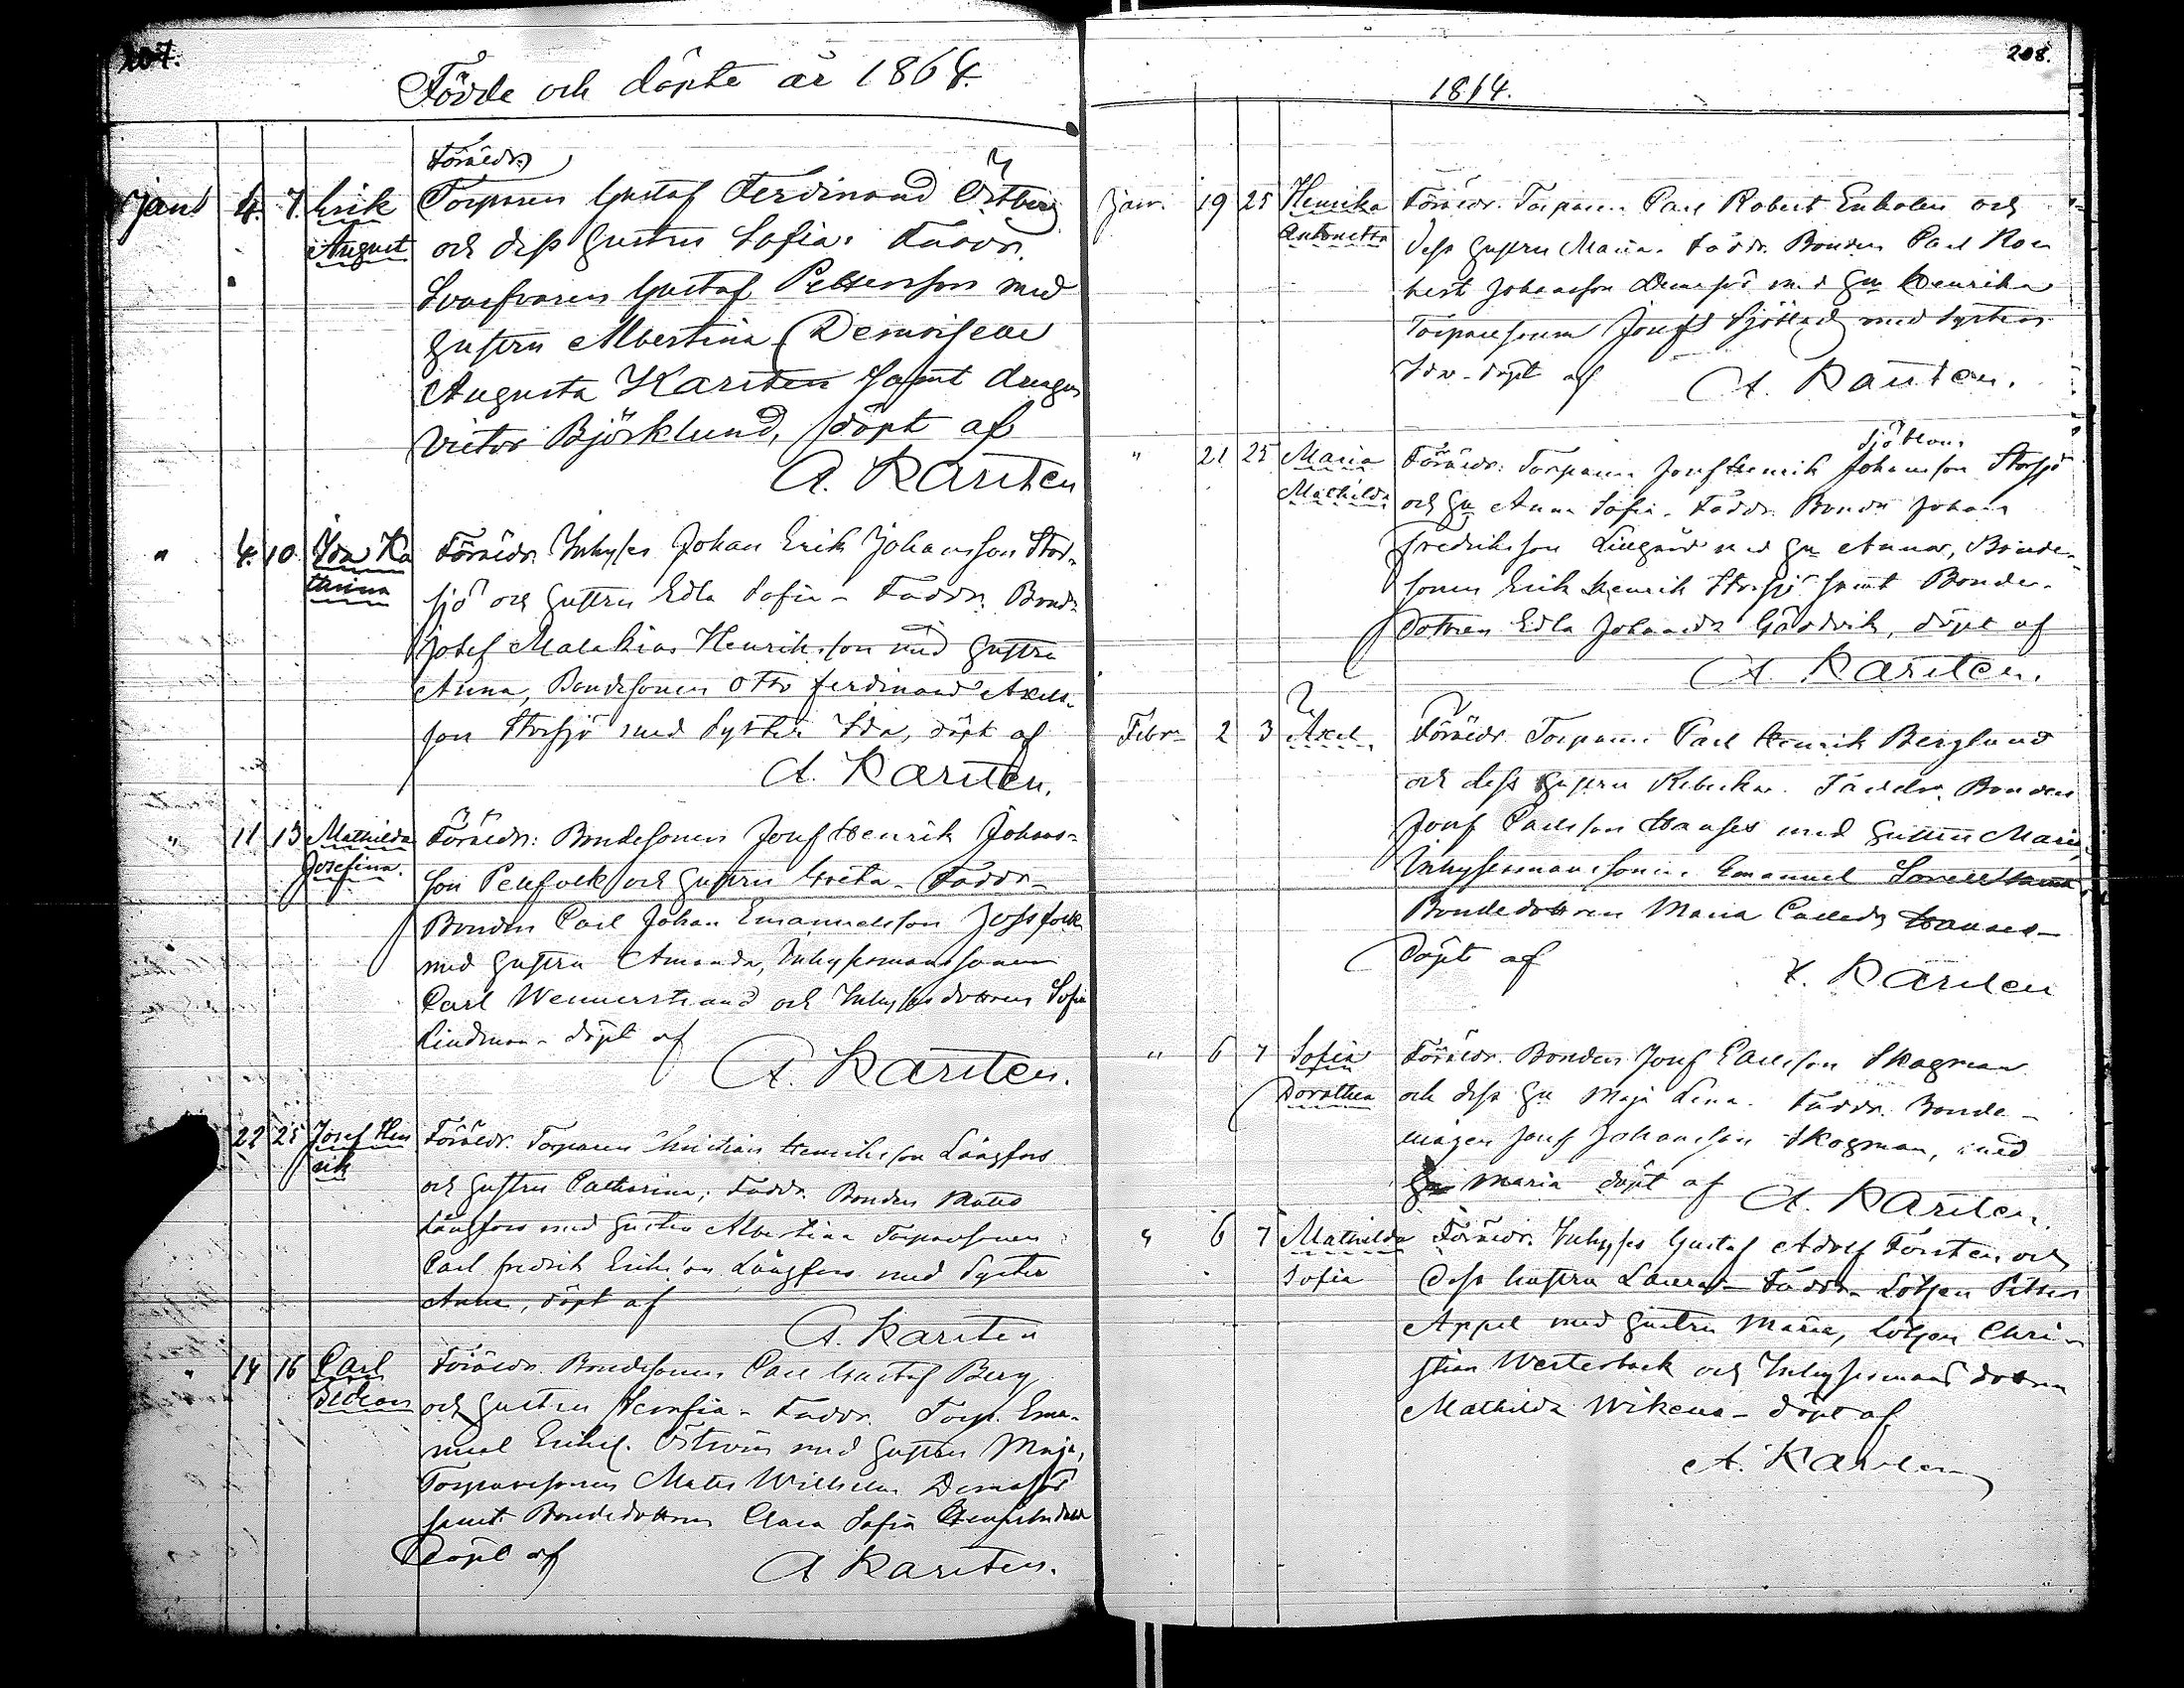 207.
Födde och döpte år 1864.
Föräldr.
Janr 4. 7. Erik Torparen Gustaf Ferdinand Östberg
August och dess hustru Sofia. Faddr.
Gustaf Pettersson med
hustru Albertina, Demoiselle
Augusta Karsten samt drengen
Victor Björklund, döpt af
A. Karsten
" 4. 10. Ida Ka Föräldr. Inhyses Johan Erik Johansson Stor-
tarina sjö och hustru Edla Sofia – Faddr. Bond.
Josef Malakias Henriksson med hustru
Anna, Bondesonen Otto Ferdinand Axels-
son Storsjö med Syster Ida, döpt af
A. Karsten.
" 11 13 Mathilda Föräldr: Bondesonen Josef Henrik Johans-
Josefina. son Pellfolk och hustru Greta – Faddr –
Bonden Carl Johan Emanuelsson Jossfolk
med hustru Amanda, Inhysesmanssonen
Carl Wennerstrand och Inhysesdottren Sofia
Lindman – döpt af
A. Karsten.
22 25 Josef Hen Föräldr. Torparen Christian Henriksson Långfors
rik och hustru Catharina; Faddr. Bonden Matts
Långfors med hustru Albertina Torparsonen
Carl Fredrik Eriksson Långfors med Syster
Anna, döpt af
A. Karsten
" 14 16 Carl Föräldr. Bondesonen Carl Gustaf Berg
och hustru Serafia – Faddr. Torp. Ema-
nuel Eriks. Öström med hustru Maja,
Torparesonen Matts Wilhelm
samt Bondedottren Clara Sofia
Döpt af
A Karsten.
208.
1864.
Janr. 19 25 Henrika Föräldr. Torparen Carl Robert Enholm och
Antonetta dess hustru Maria. Faddr. Bonden Carl Ro
bert Johansson med hu Henrika
Torparesonen Josef med Syster
Ida – döpt af
A. Karsten.
Sjöblom
" 21 25 Maria Föräldr: Torparen Josef Henrik Johansson Storsjö
Mathilda och hu Anna Sofia. Faddr. Bonden Johan
Fredriksson Lillgård med hu Anna, Bonde-
sonen Erik Henrik Storsjö samt Bonde-
dottren Edla Johansdr Gårdvik, döpt af
A. Karsten.
Febr. 2 3 Axel Föräldr Torparen Carl Henrik Berglund
och dess hustru Rebecka. Faddr. Bonden
Josef Carlsson Hanses med hustru Maria,
Inhysesmanssonen Emanuel
Bondedottren Maria Carlsdr Hanses –
Döpt af
A. Karsten
" 6 7 Sofia Föräldr. Bonden Josef Carlsson Skogman
Dorothea och dess hu Maja Lena. Faddr. Bonde-
mågen Josef Johansson Skogman, med
hu Maria döpt af
A. Karsten.
" 6 7 Mathilda Föräldr. Inhyses Gustaf Adolf Försten och
Sofia Dess hustru Laura – Faddr – Lotsen Petter
Appel med hustru Maria, Lotsen Chri-
stian Westerback och Inhysesmans dottren
Mathilda Wikena – döpt af
A. Karsten